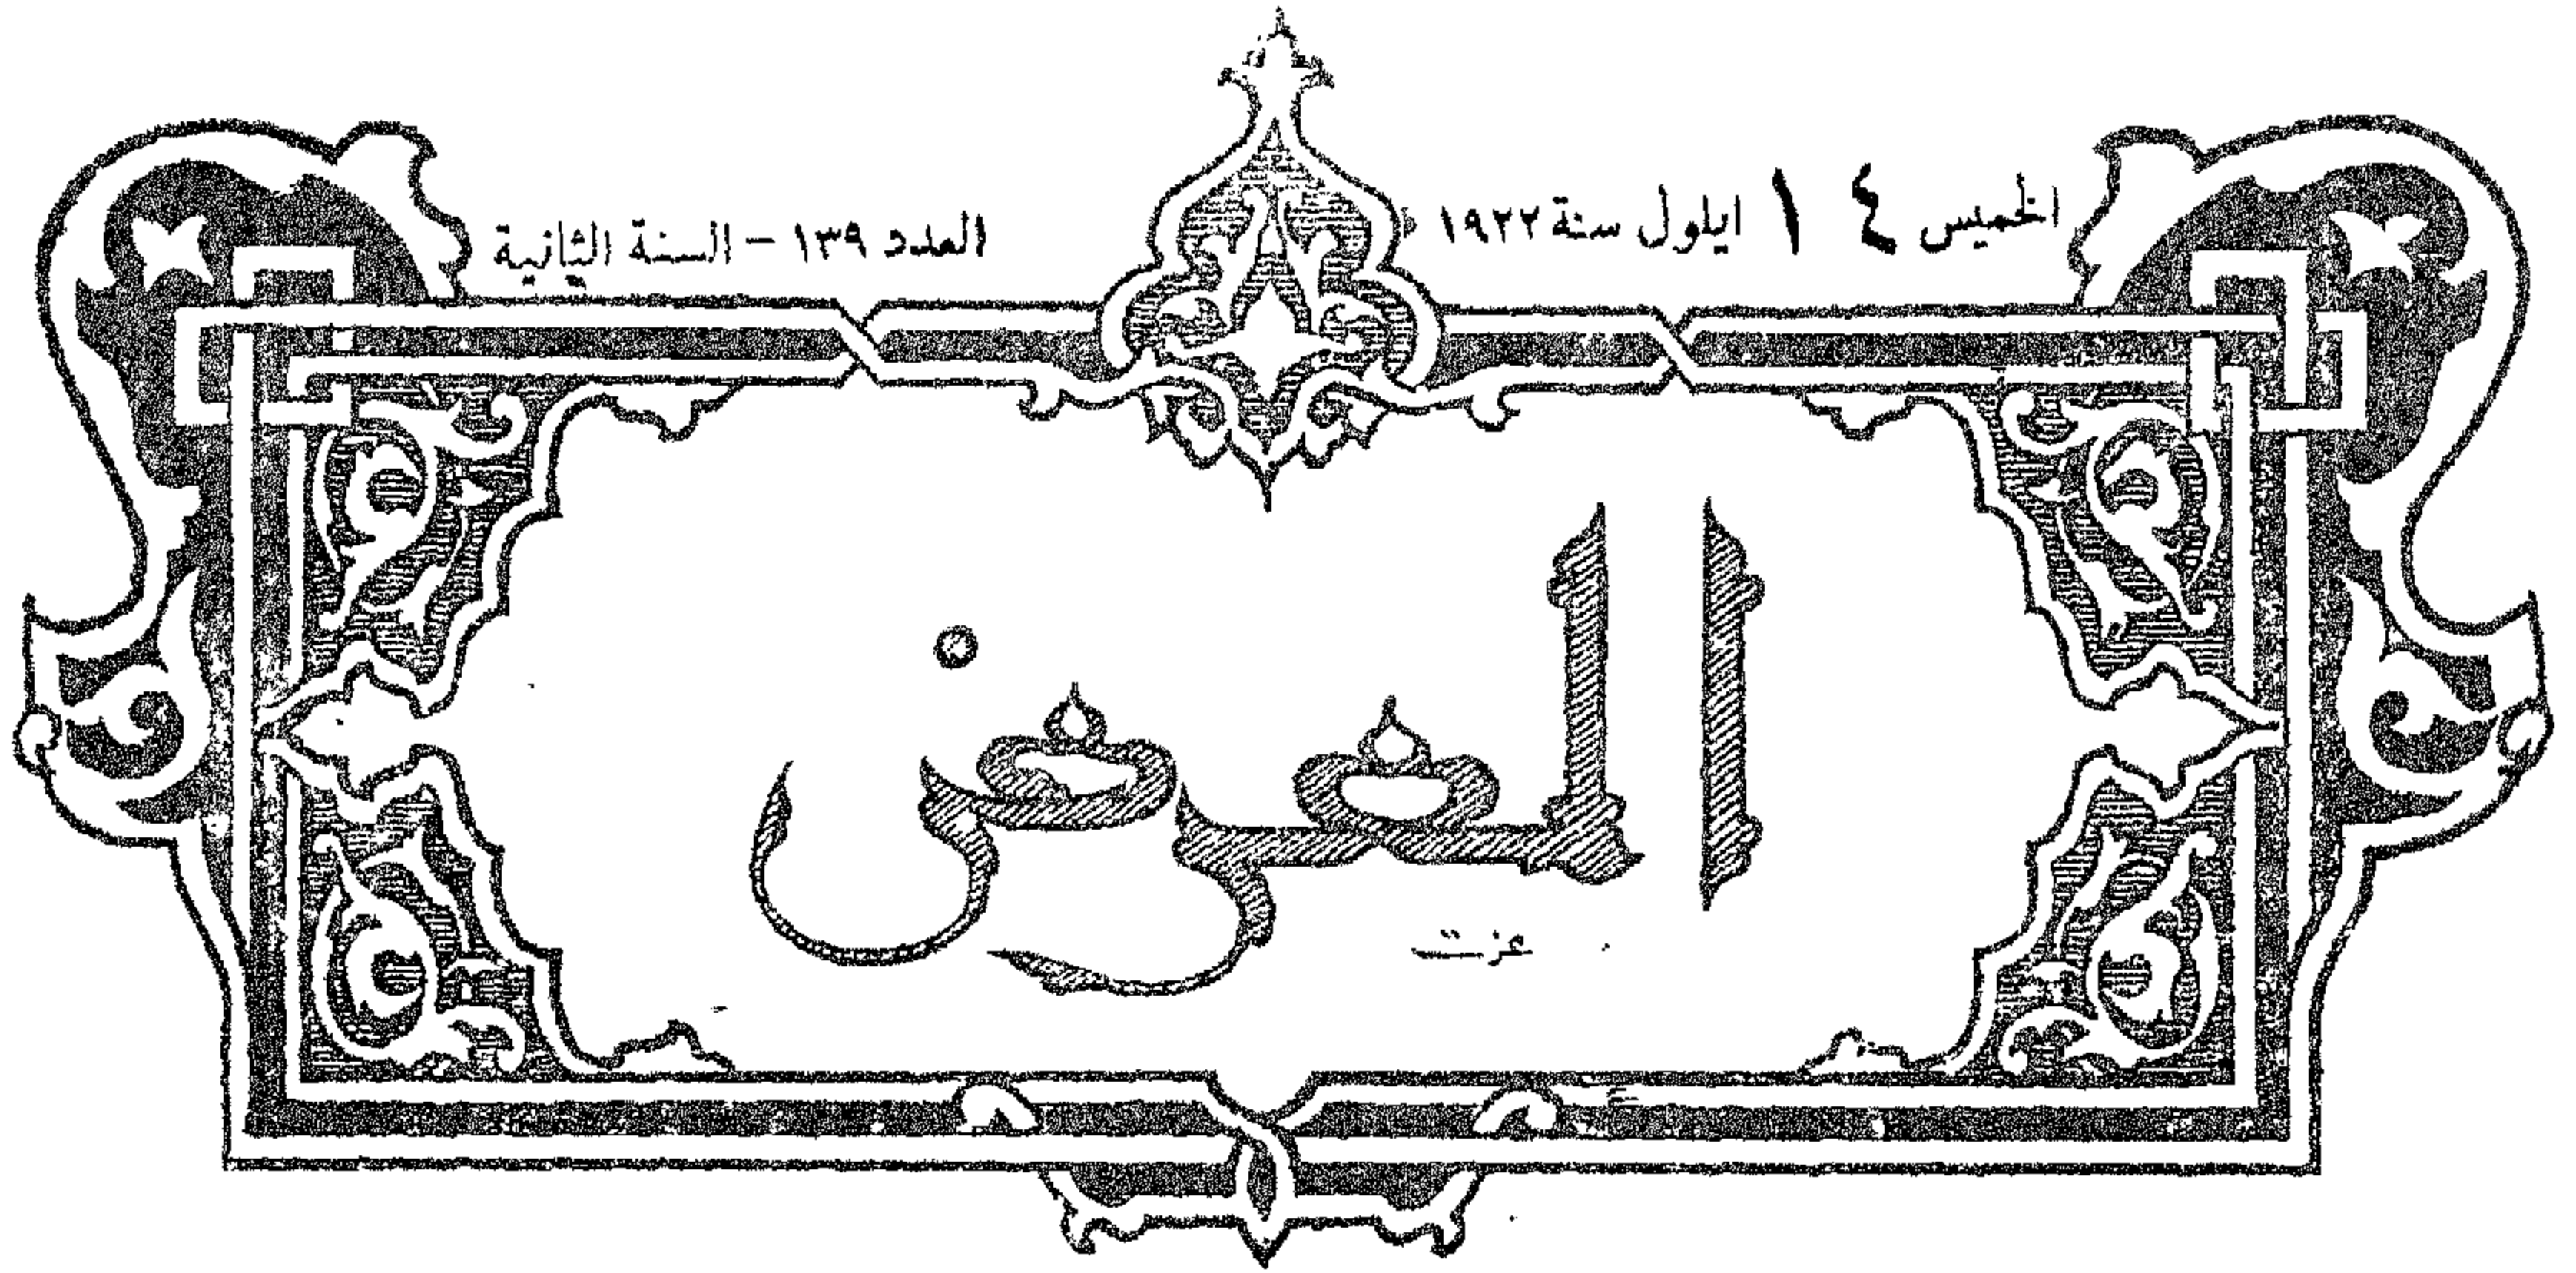 الخميس ١٤ ايلول سنة ١٩٢٢
العدد ١٣٩ – السنة الثانية
المعرض
عزت